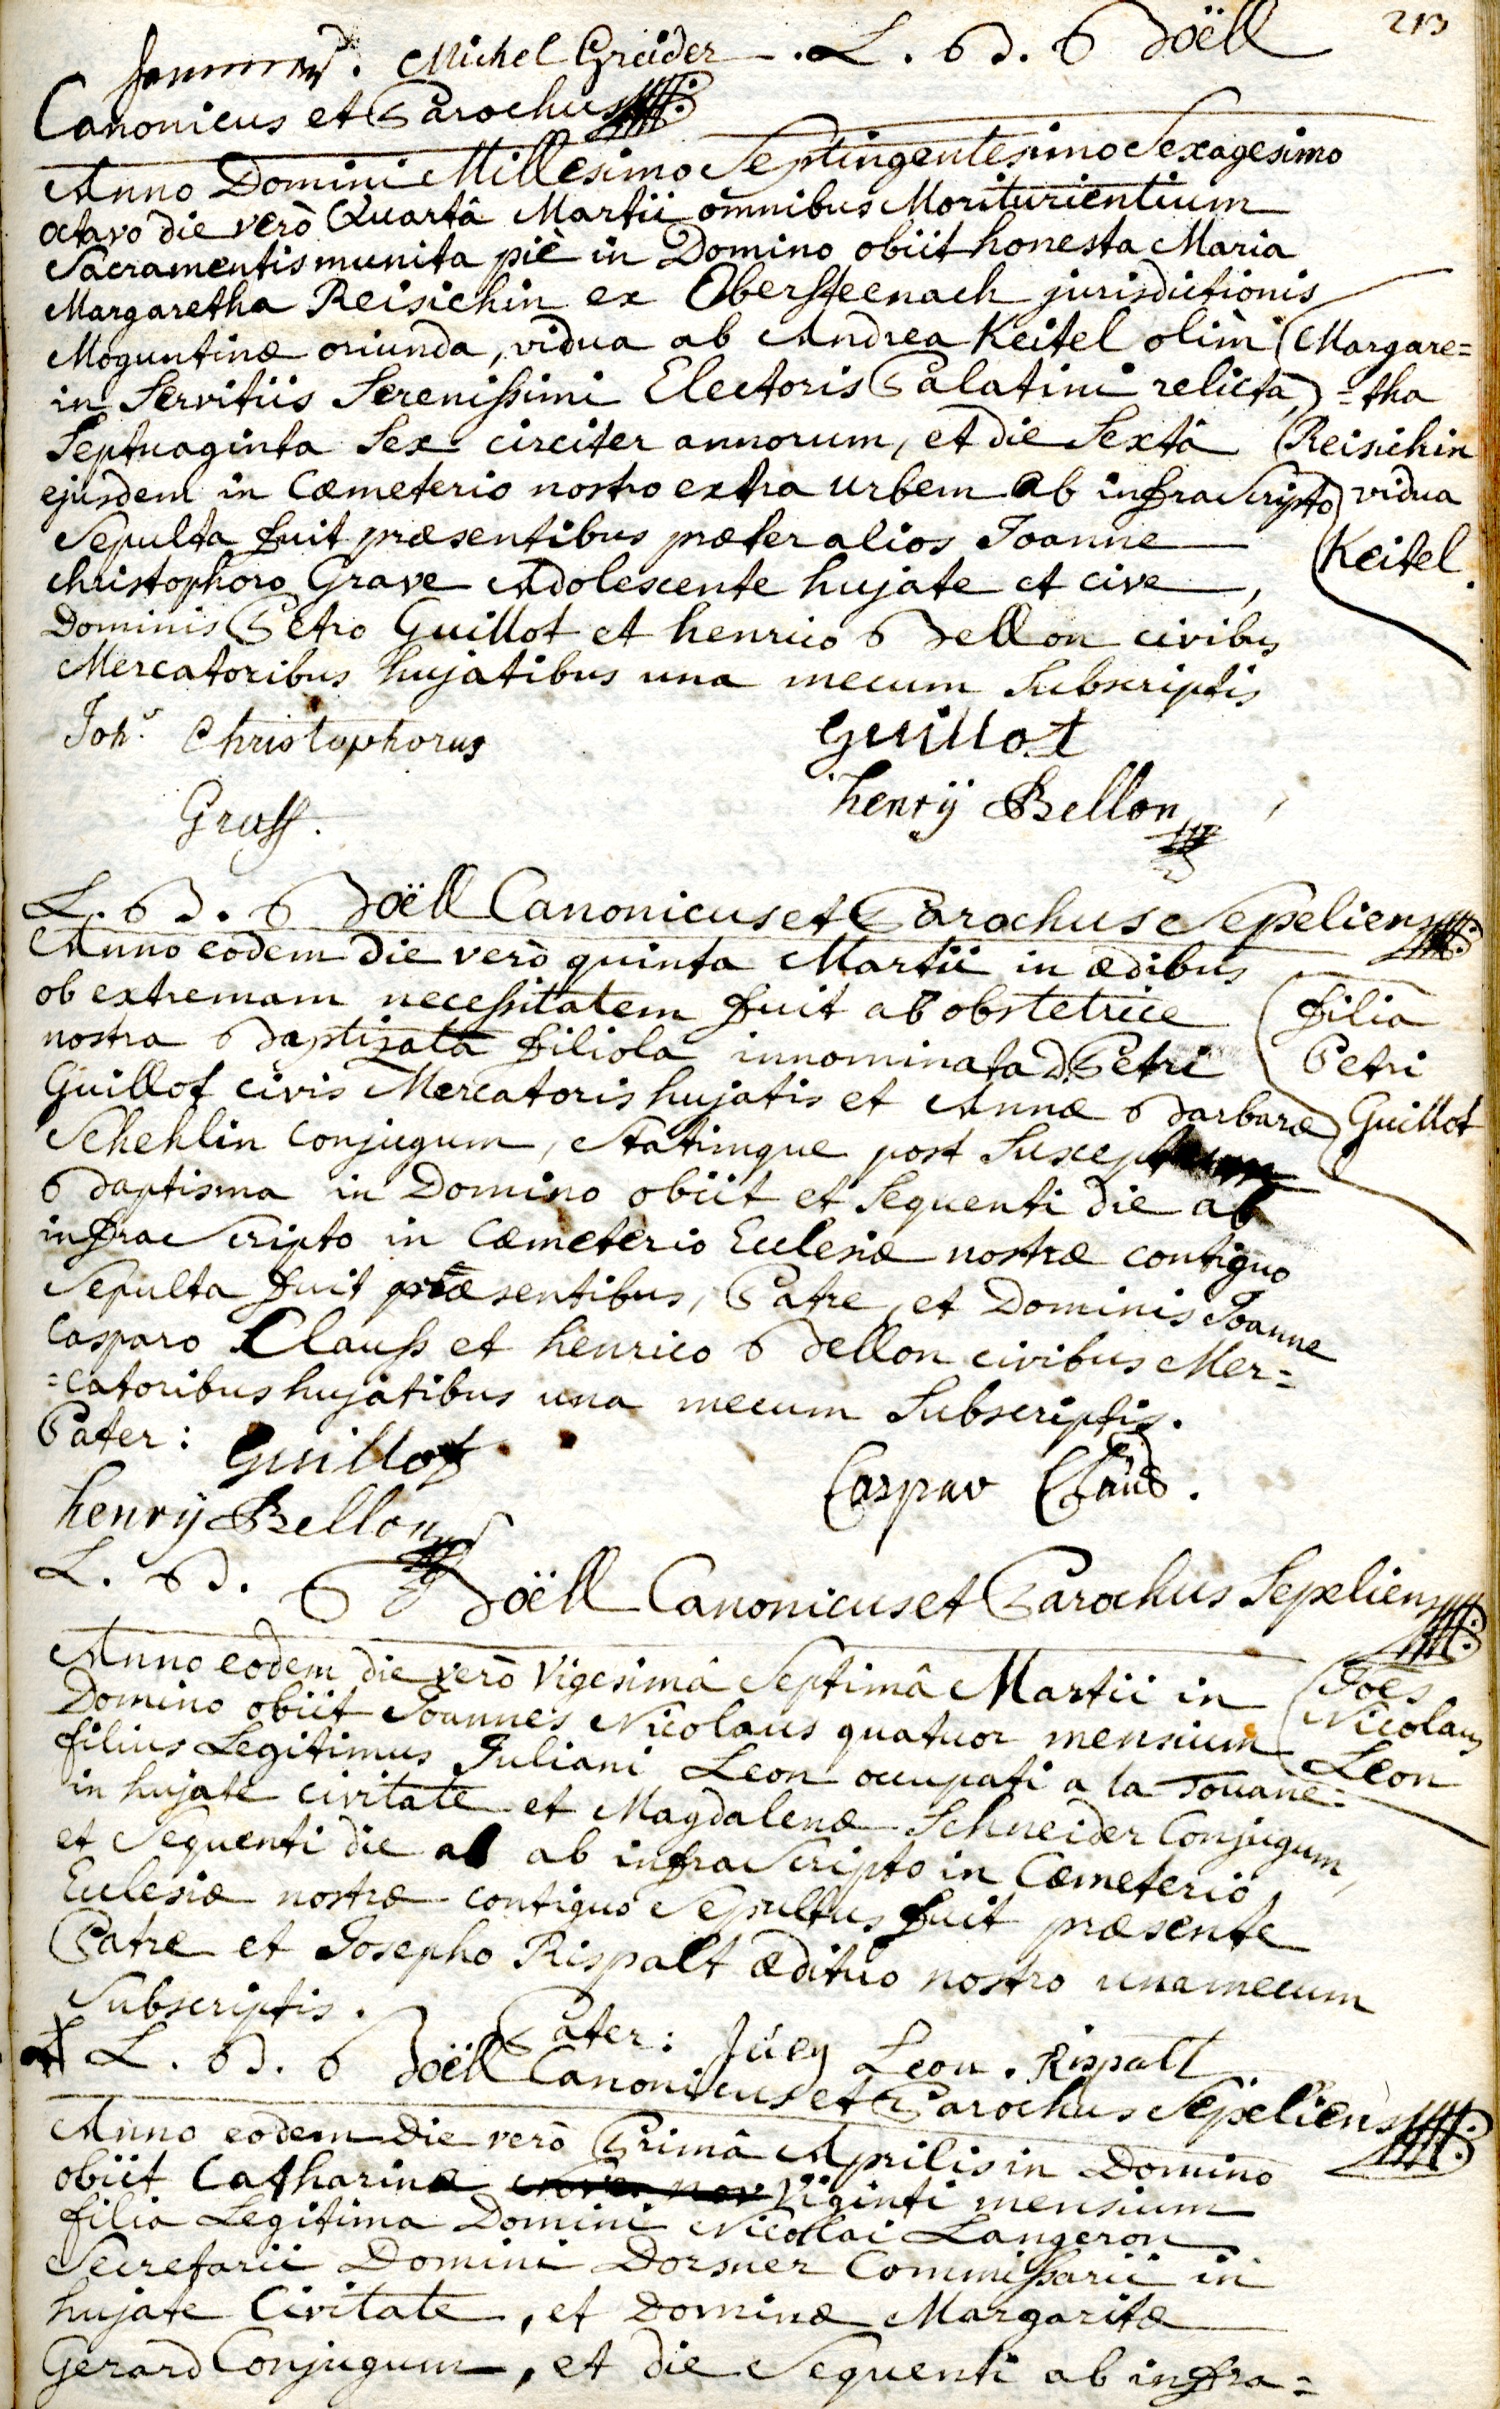 213
Michel Greider . L. B. Böell
Canonicus et Parochus
Anno Domini Millesimo Septingentesimo Sexagesimo
octavo die verò Quartâ Martii omnibus Moriturientium
Sacramentis munita piè in Domino obiit honesta Maria
Margaretha Reisichin ex Obersteenach jurisdictionis
Moguntinæ oriunda, vidua ab Andrea Keitel olim
in Servitiis Serenissimi Electoris Palatini relicta,
Septuaginta Sex circiter annorum, et die Sextâ
ejusdem in Cæmeterio nostro extra urbem ab infra Scripto
Sepulta fuit præsentibus præter alios Joanne
Christophoro Grave Adolescente hujate et cive,
Dominis Petro Guillot et henrico Bellon civibus
Mercatoribus hujatibus una mecum Subscriptis
Margare=
=tha
Reisichin
vidua
Keitel.
Joh. Christophorus
Guillot
henrÿ Bellon
L. B. Böell Canonicus et Parochus Sepeliens
Anno eodem die verò quinta Martii in ædibus
ob extremam necessitatem fuit ab obstetrice
nostra baptizata filiola innominata D. Petri
Guillot civis Mercatoris hujatis et Annæ Barbaræ
Schehlin Conjugum, Statimque post Susceptum
Baptisma in Domino obiit et Sequenti die ab
infra Scripto in Cæmeterio Ecclesiæ nostræ contiguo
Sepulta fuit præsentibus, Patre, et Dominis Joanne
Casparo Clauss et henrico Bellon civibus Mer=
=catoribus hujatibus una mecum Subscriptis.
filia
Petri
Guillot
Pater: Guillot
Caspar Claus.
henrÿ Bellon
L. B. Böell Canonicus et Parochus Sepeliens
Anno eodem die verò Vigesimâ Septimâ Martii in
Domino obiit Joannes Nicolaus quatuor mensium
filius Legitimus Juliani Leon occupati a la Douane
in hujate civitate et Magdalenæ Schneider Conjugum,
et Sequenti die ab ab infra Scripto in Cæmeterio
Ecclesiæ nostræ contiguo Sepultus fuit præsente
Patre et Josepho Rispalt ædituo nostro una mecum
Subscriptis.
Joes
Nicolaus
Leon
Pater: Leon . Rispalt
L. B. Böell Canonicus et Parochus Sepeliens
Anno eodem Die verò Primâ Aprilis in Domino
obiit Catharina Viginti mensium
filia Legitima Domini Nicollai Langeron
Secretarii Domini Dorsner Commissarii in
hujate Civitate, et Dominæ Margaritæ
Gerard Conjugum, et die Sequenti ab infra=